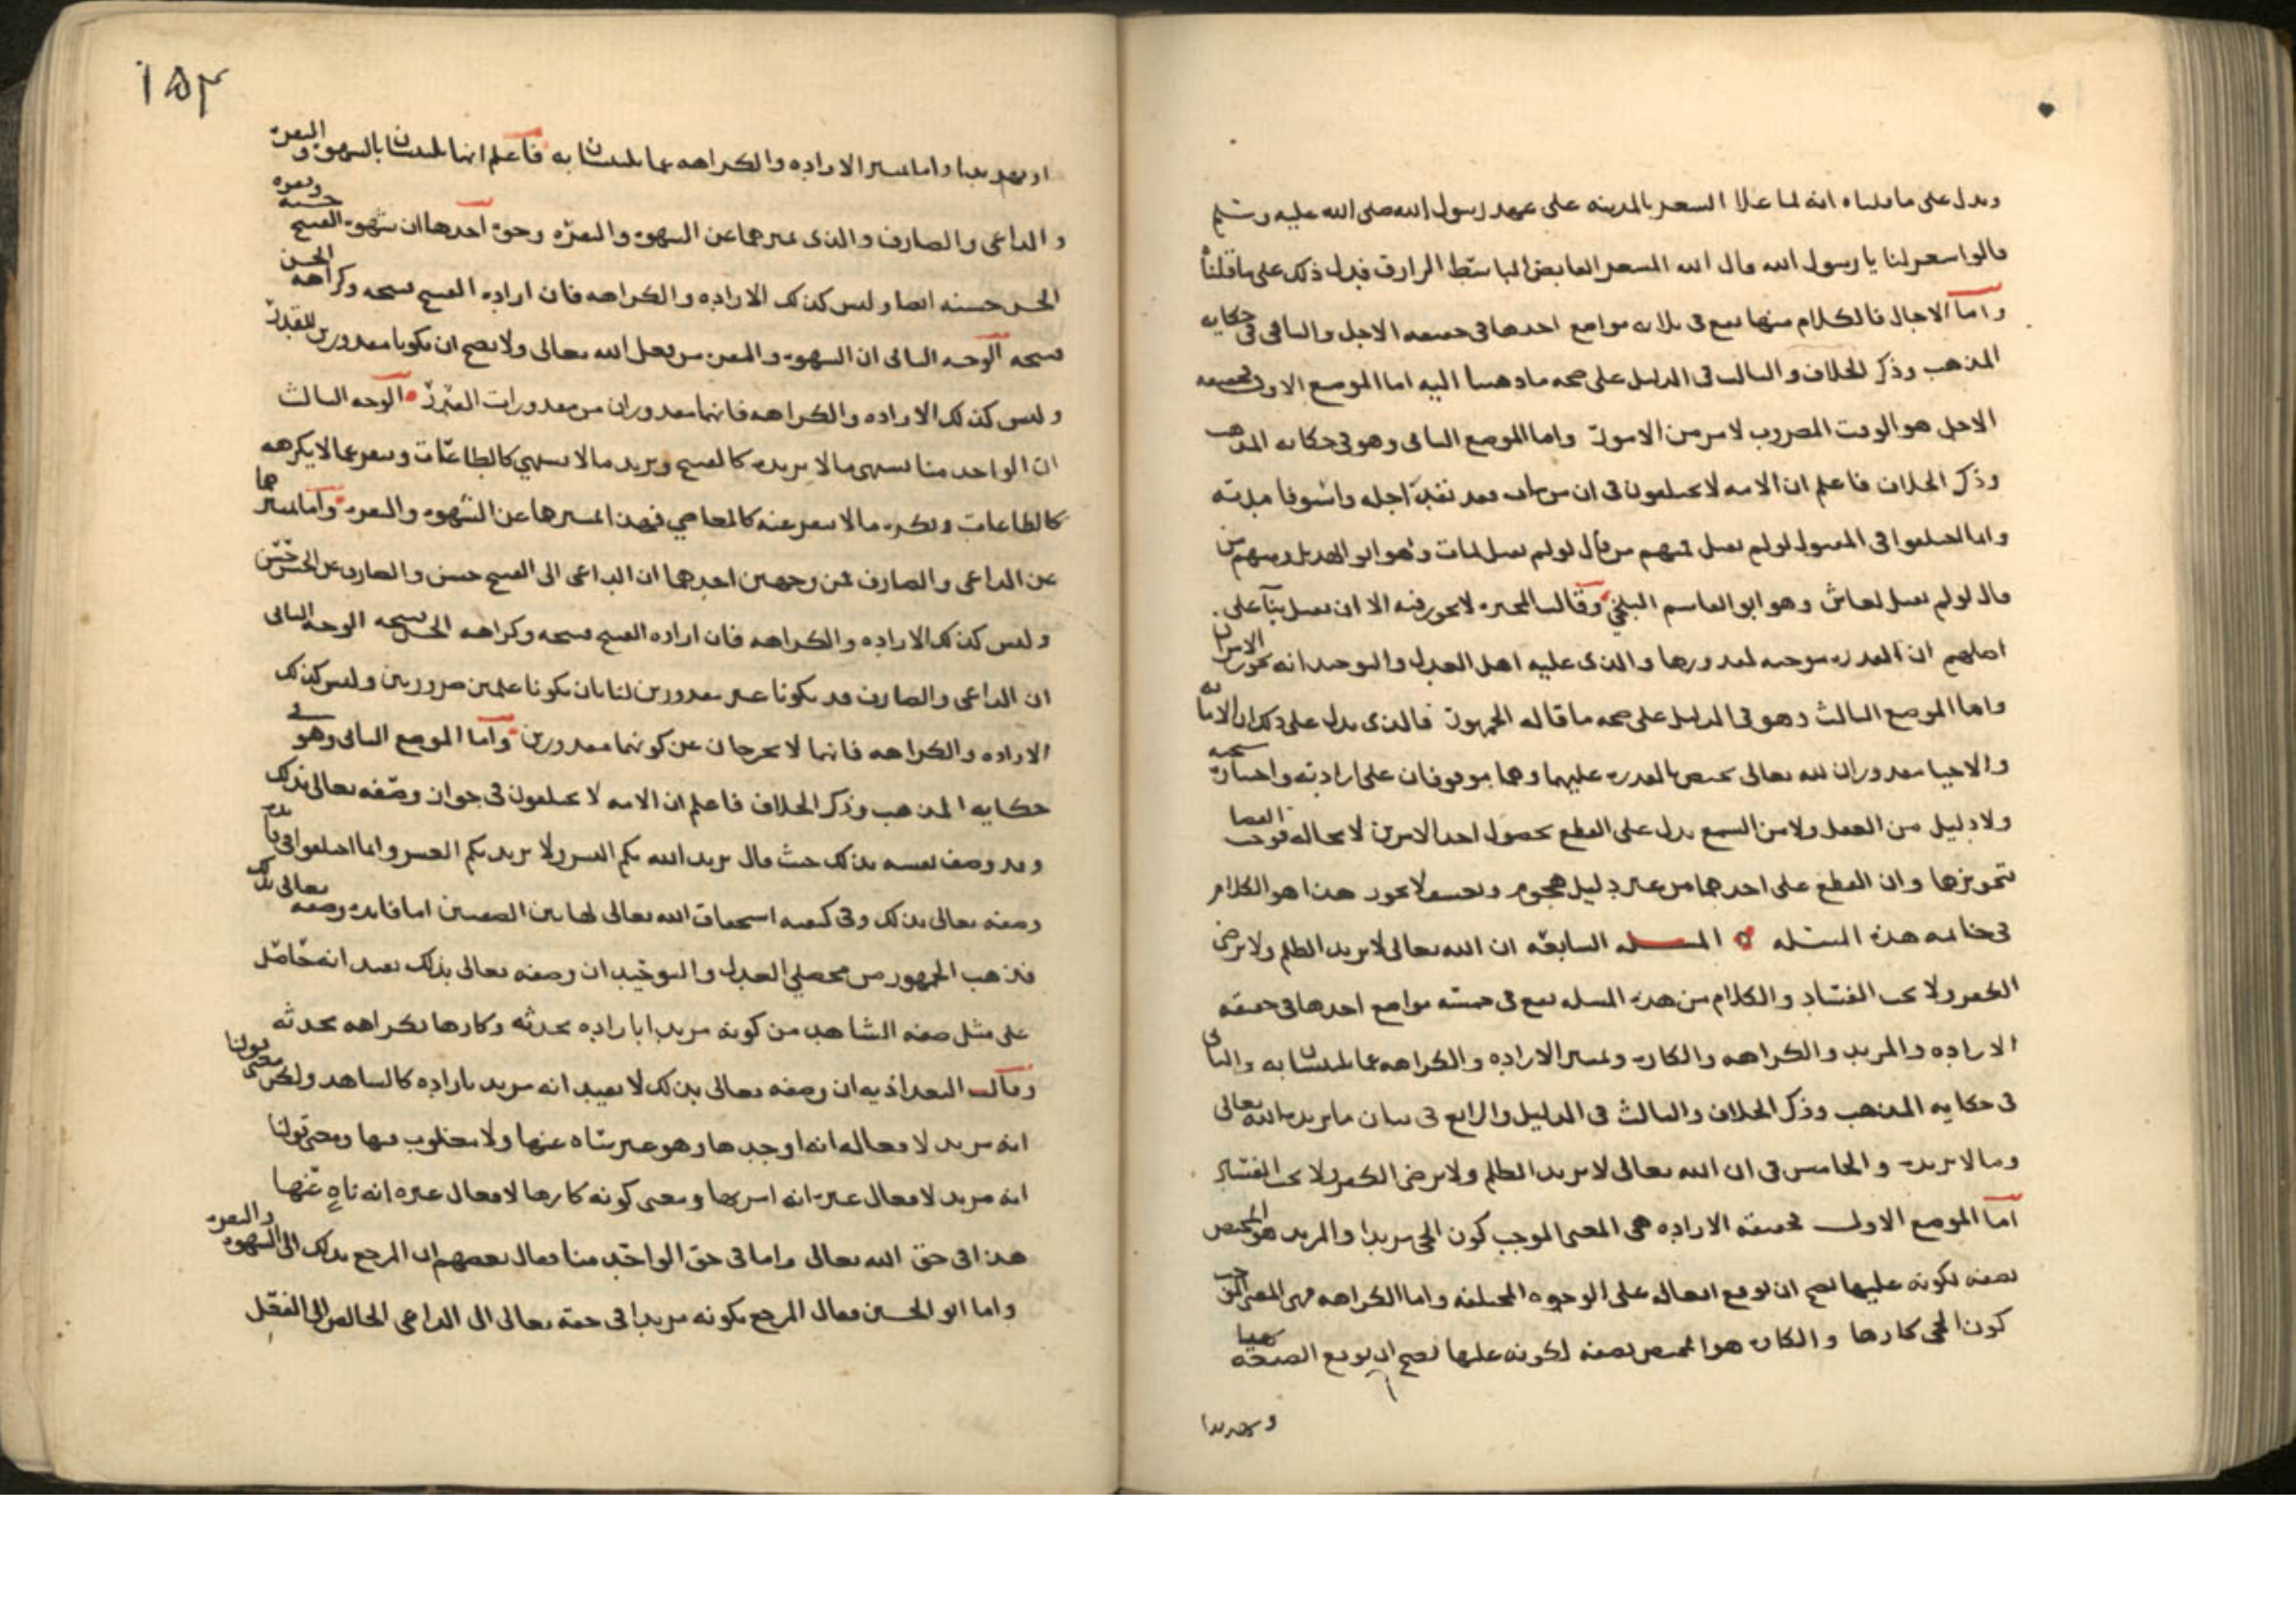 ويدل على ما قلناه انه لما غلا السعر بالمدينه على عهد رسول الله صلى الله عليه وسلم
قالوا سعر لنا يا رسول الله قال الله المسعر القابض الباسط الرازق فدل ذلك على ما قلناه
واما الاجال فالكلام منها يقع في ثلاثه مواضع احدها في حقيقه الاجل والثاني في حكايه
المذهب وذكر الخلاف والثالث في الدليل على صحه ما ذهبنا اليه اما الموضع الاول فحقيقه
الاجل هو الوقت المضروب لامر من الامور واما الموضع الثاني وهو في حكايه المذهب
وذكر الخلاف فاعلم ان الامه لا يختلفون في ان من مات فقد نفد اجله واستوفا مدته
وانما اختلفوا في المقتول لو لم يقتل فمنهم من قال لو لم يقتل لمات وهو ابو الهذيل ومنهم من
قال لو لم يقتل لعاش وهو ابو القاسم البلخي وقالت المجبره لا يجوز فيه الا ان يقتل بنآ على
اصلهم ان القدره موجبه لمقدورها والذي عليه اهل العدل والتوحيد انه يجوز الامران
واما الموضع الثالث وهو في الدليل على صحه ما قاله الجمهور فالذي يدل على ذلك ان الاماته
والاحيا مقدوران لله تعالى يختص بالقدره عليهما وهما موقوفان على ارادته واختياره
ولا دليل من العقل ولا من السمع يدل على القطع بحصول احد الامرين لا محاله فوجب القضا
بتجويزها وان القطع على احدهما من غير دليل هجوم لا يجوز هذا هو الكلام
في خاتمه هذه المسئله المسله السابعه ان الله تعالى لا يريد الظلم ولا يرضى
الكفر ولا يحب الفساد والكلام من هذه المسله يقع في خمسه مواضع احدها في حقيقه
الاراده والمريد والكراهه والكاره وتمييز الاراده والكراهه عما يلتبسان به والثاني
في حكايه المذهب وذكر الخلاف والثالث في الدليل والرابع في بيان ما يريده الله تعالى
وما لا يريده والخامس في ان الله تعالى لا يريد الظلم ولا يرضى الكفر ولا يحب الفساد
اما الموضع الاول فحقيقه الاراده هي المعنى الموجب كون الحي مريدا والمريد هو المختص
بصفه لكونه عليها يصح ان يوقع افعاله على الوجوه المختلفه واما الكراهه فهي المعنى الموجب
كون الحي كارها والكاره هو المختص بصفه لكونه عليها يصح ان يوقع الصيغه نهيا
١٥٤
او تهديدا واما تمييز الاراده والكراهه عما يلتبسان به فاعلم انهما يلتبسان بالشهوه والنفره
والداعي والصارف والذي يميزهما عن الشهوه والنفره وجوه احدها ان شهوه القبيح حسنه ونفره
الحسن حسنه ايضا وليس كذلك الاراده والكراهه فان اراده القبيح قبيحه وكراهه الحسن
قبيحه الوجه الثاني ان الشهوه والنفره من فعل الله تعالى ولا يصح ان يكونا مقدورين للقدر
وليس كذلك الاراده والكراهه فانهما مقدوران من مقدورات القدر الوجه الثالث
ان الواحد منا يشتهي ما لا يريده كالقبيح ويريد ما لا يشتهي كالطاعات وينفر عما لا يكرهه
كالطاعات ويكره ما لا ينفر عنه كالمعاصي فهذا تمييزها عن الشهوه والنفره واما تمييزهما
عن الداعي والصارف فمن وجهين احدهما ان الداعي الى القبيح حسن والصارف عن الحسن حسن
وليس كذلك الاراده والكراهه فان اراده القبيح قبيحه وكراهه الحسن قبيحه الوجه الثاني
ان الداعي والصارف قد يكونا غير مقدورين لنا بان يكونا علمين ضروريين وليس كذلك
الاراده والكراهه فانهما لا يخرجان عن كونهما مقدورين واما الموضع الثاني وهو في
حكايه المذهب وذكر الخلاف فاعلم ان الامه لا يختلفون في جواز وصفه تعالى بذلك
وقد وصف نفسه بذلك حيث قال يريد الله بكم اليسر ولا يريد بكم العسر وانما اختلفوا في فايده
وصفه تعالى بذلك وفي كيفيه استحقاق الله تعالى لهاتين الصفتين اما فايده وصفه تعالى بذلك
فذهب الجمهور من محصلي العدل والتوحيد ان وصفه تعالى بذلك يفيد انه حاصل
على مثل صفه الشاهد من كونه مريدا باراده محدثه وكارها بكراهه محدثه
وقالت البغداذيه ان وصفه تعالى بذلك لا يفيد انه مريد باراده كالشاهد ولكن معنى قولنا
انه مريد لافعاله انه اوجدها وهو غير ساه عنها ولا مغلوب فيها ومعنى قولنا
انه مريد لافعال غيره انه امر بها ومعنى كونه كارها لافعال غيره انه ناهٍ عنها
هذا في حق الله تعالى واما في حق الواحد منا فقال بعضهم ان المرجع بذلك الى الشهوه والنفره
واما ابو الحسين فقال المرجع بكونه مريدا في حقه تعالى الى الداعي الخالص الى الفعل